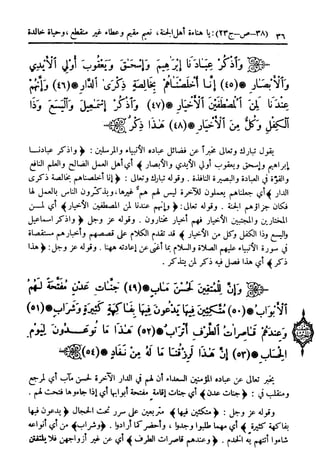 ٣٦ (٣٨ـ ص ـ ج٢٣): يا هناءة أهل الجنة، نعيم مقيم وعطاء غير منقطع، وحياة خالدة
وَاذْكُرْ عِبَادَنَا إِبْرَاهِيمَ وَإِسْحَقَ وَيَعْقُوبَ أُولِي الْأَيْدِي
وَالْأَبْصَارِ (٤٥) إِنَّا أَخْلَصْنَاهُمْ بِخَالِصَةٍ ذِكْرَى الدَّارِ (٤٦) وَإِنَّهُمْ
عِنْدَنَا لَمِنَ الْمُصْطَفَيْنَ الْأَخْيَارِ (٤٧) وَاذْكُرْ إِسْمَعِيلَ وَالْيَسَعَ وَذَا
الْكِفْلِ وَكُلٌّ مِنَ الْأَخْيَارِ (٤٨) هَذَا ذِكْرٌ
يقول تبارك وتعالى مخبراً عن فضائل عباده الأنبياء والمرسلين: ﴿واذكر عبادنا
إبراهيم وإسحق ويعقوب أولي الأيدي والأبصار﴾ أي أهل العمل الصالح والعلم النافع
والقوة في العبادة والبصيرة النافذة. وقوله تبارك وتعالى: ﴿إنا أخلصناهم بخالصة ذكرى
الدار﴾ أي جعلناهم يعملون للآخرة ليس لهم هم غيرها، ويذكرون الناس بالعمل لها
فكان جزاؤهم الجنة. وقوله تعالى: ﴿وإنهم عندنا لمن المصطفين الأخيار﴾ أي لمن
المختارين والمجتبين الأخيار فهم أخيار مختارون. وقوله عز وجل ﴿واذكر إسماعيل
واليسع وذا الكفل وكل من الأخيار﴾ قد تقدم الكلام على قصصهم وأخبارهم مستقصاة
في سورة الأنبياء عليهم الصلاة والسلام بما أغنى عن إعادته ههنا. وقوله عز وجل: ﴿هذا
ذكر﴾ أي هذا فصل فيه ذكر لمن يتذكر.
وَإِنَّ لِلْمُتَّقِينَ لَحُسْنَ مَآبٍ (٤٩) جَنَّاتِ عَدْنٍ مُفَتَّحَةً لَهُمُ
الْأَبْوَابُ (٥٠) مُتَّكِئِينَ فِيهَا يَدْعُونَ فِيهَا بِفَاكِهَةٍ كَثِيرَةٍ وَشَرَابٍ (٥١)
وَعِنْدَهُمْ قَاصِرَاتُ الطَّرْفِ أَتْرَابٌ (٥٢) هَذَا مَا تُوعَدُونَ لِيَوْمِ
الْحِسَابِ (٥٣) إِنَّ هَذَا لَرِزْقُنَا مَا لَهُ مِنْ نَفَادٍ (٥٤)
يخبر تعالى عن عباده المؤمنين السعداء أن لهم في الدار الآخرة لحسن مآب أي لمرجع
ومنقلب في: ﴿جنات عدن﴾ أي جنات إقامة مفتحة أبوابها أي إذا جاءوها فتحت لهم.
وقوله عز وجل: ﴿متكئين فيها﴾ متربعين على سرر تحت الحجال ﴿يدعون فيها
بفاكهة كثيرة﴾ أي مهما طلبوا وجدوا، وأحضر كما أرادوا. ﴿وشراب﴾ من أي أنواعه
شاءوا أتتهم به الخدم. ﴿وعندهم قاصرات الطرف﴾ أي عن غير أزواجهن فلا يلتفتن